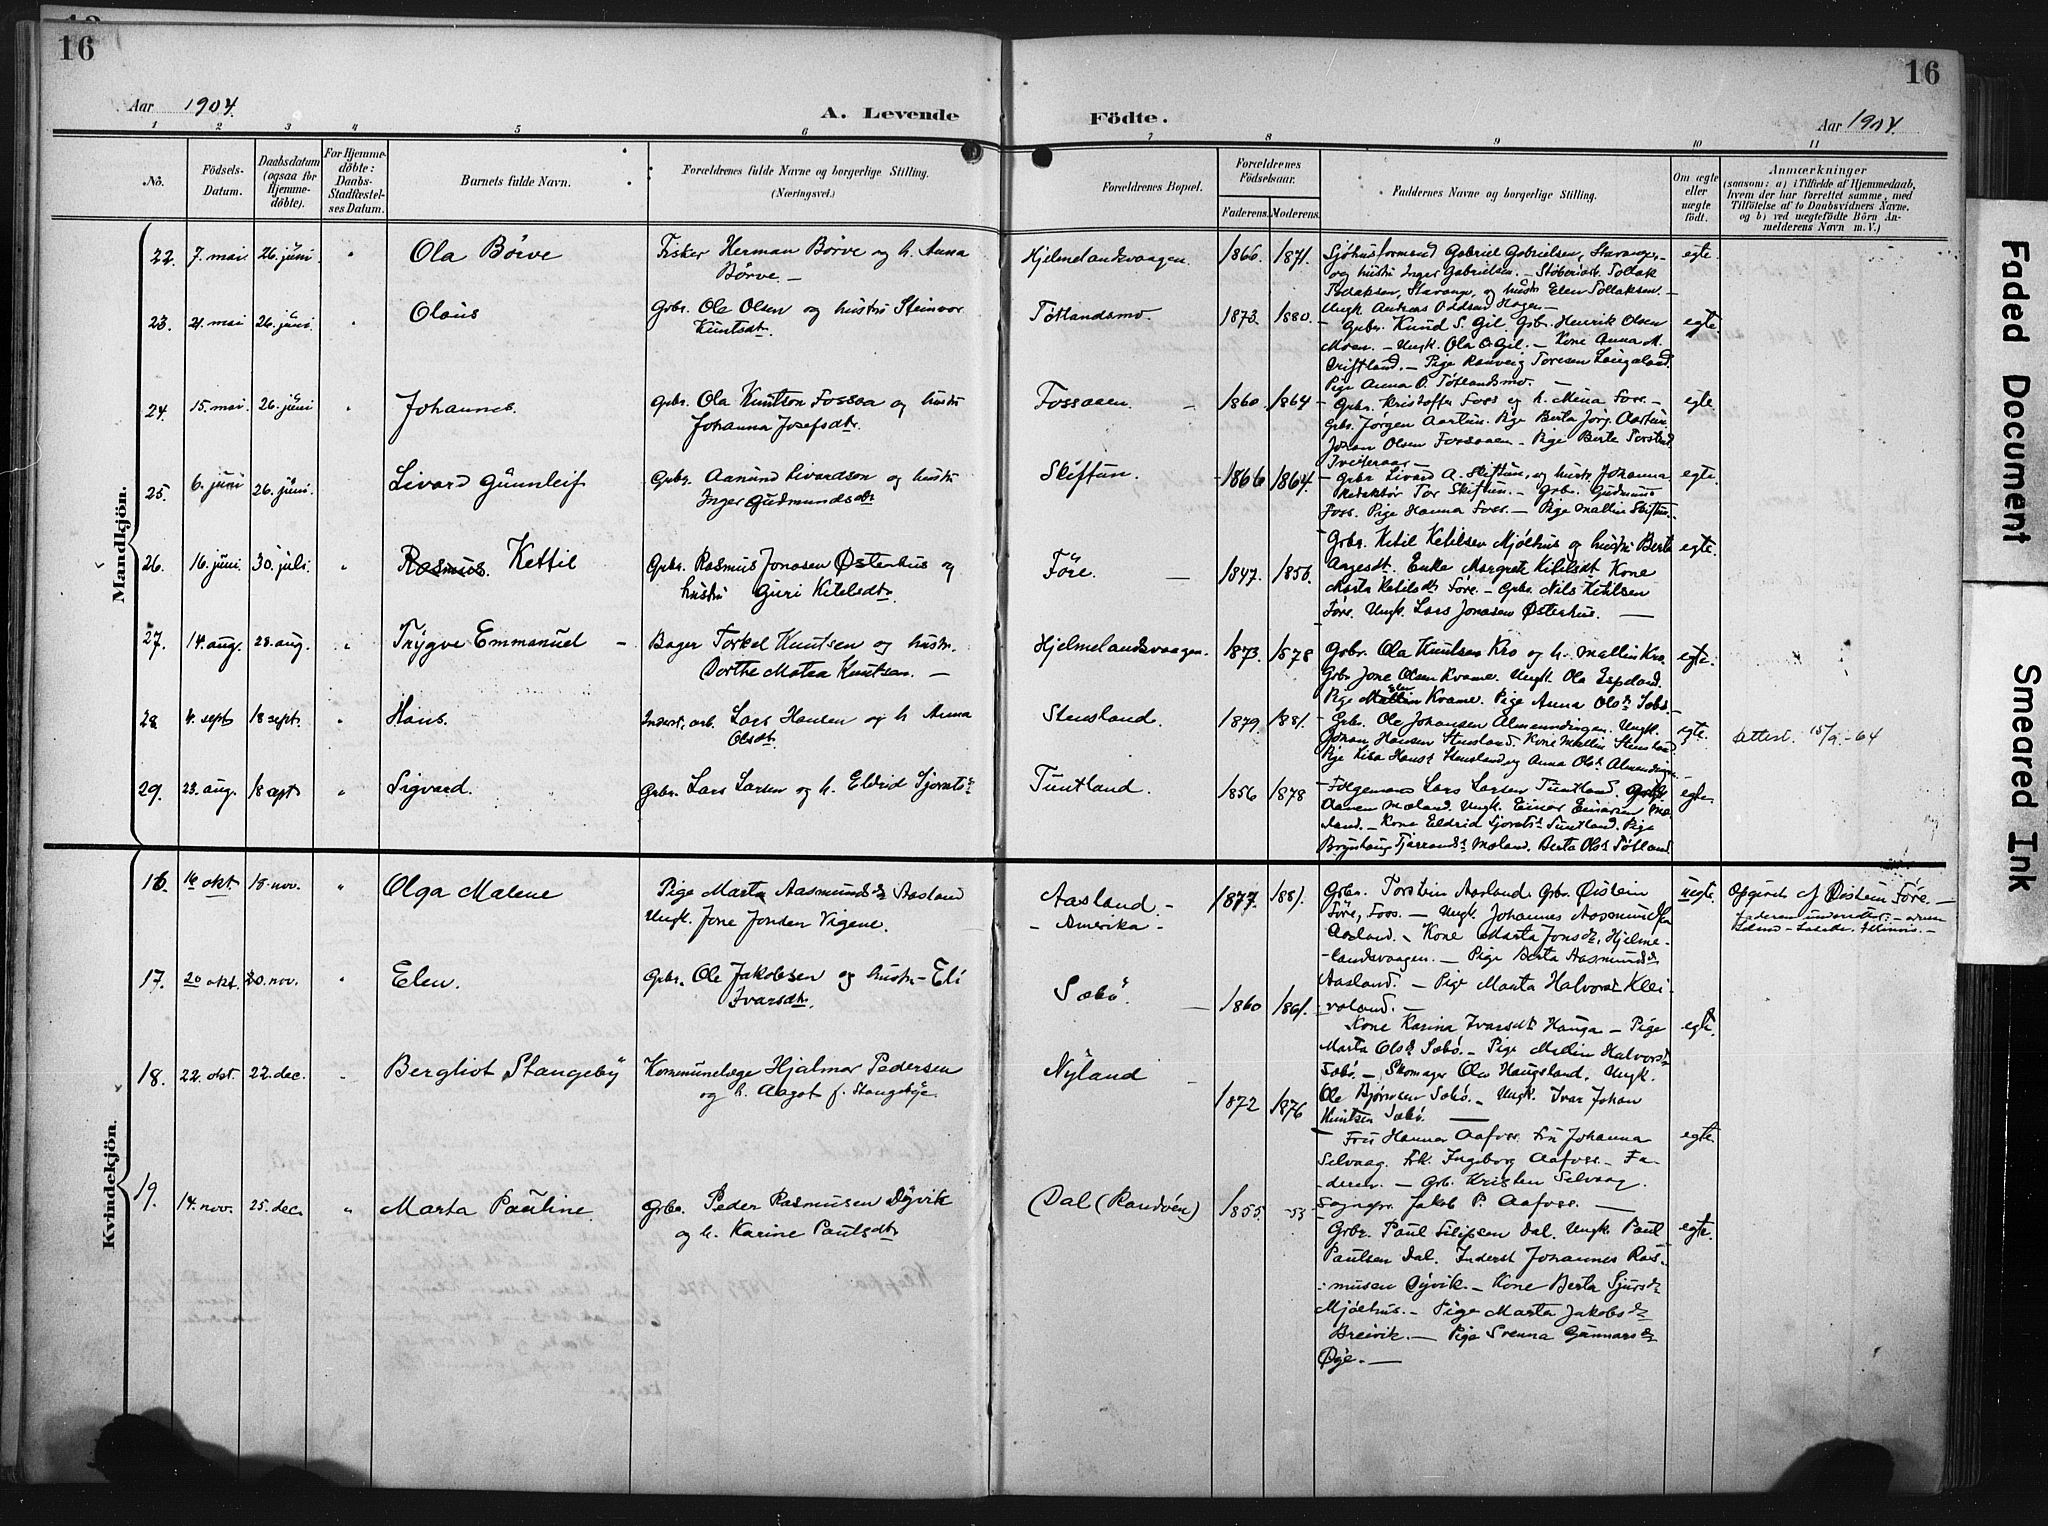 16
16
Aar 1904.
A. Levende
Födte.
Aar 1904.
1 2 3 4 5 6 7 8 9 10 11
No.
Födsels-Datum.
Daabsdatum (ogsaa for Hjemmedöbte).
For Hjemmedöbte: Daabs-Stadfæstelses Datum.
Barnets fulde Navn.
Forældrenes fulde Navne og borgerlige Stilling.
(Næringsvei.)
Forældrenes Bopæl.
Forældrenes Födselsaar.
Faderens. Moderens.
Faddernes Navne og borgerlige Stilling.
Om ægte eller uægte födt.
Anmærkninger
(saasom: a) i Tilfælde af Hjemmedaab,
hvem der har forrettet samme, med
Tilföielse af to Daabsvidners Navne.
og b) ved uægtefödte Börn Anmelderens Navn m. V.)
Mandkjön.
22. 7. mai 26. juni. " Ola Börve
Fisker Herman Börve og h. Anna
Börve —
Hjelmelandsvaagen. 1866. 1871.
Sjøhusformand Gabriel Gabrielsen, Stavanger,
og hustru Inger Gabrielsen. — Støberiarb. Tollak
Tollaksen, Stavange, og hustr Elen Tollaksen. —
Ungk Andreas Oddsen Hagen —
egte.
23. 21. mai 26. juni. " Olaus
Grbr. Ole Olsen og hustru Steinvor
Knutsdt.
Tötlandsmo. 1873. 1880.
— Grbr. Knud S. Gil. Grb. Henrik Olsen
Moen. — Ungk. Ola O. Gil. — Kone Anna M.
Driftland. — Pige Ranveig Toresen Laugaland.
Pige Anna O. Tötlandsmo. —
egte.
24. 15. mai. 26. juni " Johannes.
Grbr. Ola Knutson Fossaa og hustr
Johanna Josefsdtr.
Fossaaen. — 1860. 1864
— Grbr. Kristoffer Foss og h. Mina Foss. —
Grbr. Jörgen Aartun. Pige Berta Jörg. Aartun.
Johan Olsen Fossaaen — Pige Berte Torstsd.
Tveiteraas —
egte.
25. 6. juni 26. juni. Livard Gunnleif
Grbr. Aanund Livardson og hustru
Inger Gudmundsdtr
Skiftun. 1866 1864.
— Grbr Livard A. Skiftun og hustr. Johanna
Redaktör Tor Skiftun. — Grbr. Gudmund
Foss. Pige Hanna Foss. — Pige Mallin Skiftun. —
egte.
26. 16. juni. 30. juli. " Rasmus. Kettil
Grbr. Rasmus Jonasen Østerhus og
hustru Guri Kitilsdtr.
Före. — 1847. 1856.
Grbr. Kitil Kitilsen Mjølhus og hustru Berta
Aagesdt. Enke Margrete Kitilsdt Kone
Marta Kitilsdt Före. — Grbr. Nils Kitilsen
Före. Ungk. Lars Jonasen Østerhus. —
egte.
27. 14. aug. 28. aug. " Trygve Emmanuel —
Bager Torkel Knutsen og hustr.
Dorthe Matea Knutsen. —
Hjelmelandsvaagen. 1873. 1878
Grbr. Ola Knutsen Kro og h. Mallin Kro.
Grbr Jone Olsen Kvame. Ungk. Ola Espeland.
Pige Mallin Elen Kvame. Pige Anna Olsdr Sebö —
egte.
28 4. sept 18 sept. " Hans.
Inderst, arb. Lars Hansen og h Anna
Olsdt.
Stensland. 1879. 1881.
— Grbr. Ole Johansen Almenndingen. Ungk.
Johan Hansen Stensland. Kone Mallin Stensland
Pige Lisa Hansd Stensland og Anna Olsd Almendingen
egte.
Attest. 15/9 - 64
29. 23. aug. 18 sept " Sigvard.
Grbr. Lars Larsen og h. Eldrid Sjovatsd
Tuntland. 1856 1878
— Følgemand Lars Larsen Tuntland. Grbr
Aanen Mæland. Ungk. Einar Einarsen Mæland. — Kone Eldrid Sjovatsd Tuntland. Pige
Brynhaug Tjærandsd Mæland. Berta Olsd Tötland.
egte.
Kvindekjön.
16. 16 okt. 18. nov. " Olga Malene
Pige Marta Aasmundsd Aasland
Ungk. Jone Jonsen Vigene.
Aasland. —
— Amerika —
1877. 1881.
Grbr. Torstein Aasland. Grbr. Øistein
Före, Foss. — Ungk. Johannes Aasmundsen
Aasland. — Kone Marta Jonsdr. Hjelmelandsvaagen. — Pige Berta Aasmundsd
Aasland. — Pige Marta Halvorsd Kleivaland. —
uegte.
Opgivet af Øistein Före. —
17. 20 okt. 20. nov. " Elen.
Grbr. Ole Jakobsen og hustr — Eli
Ivarsdtr.
Sæbö. — 1860 1861.
Kone Karina Ivarsdt Hauga — Pige
Marta Olsd Sæbö. — Pige Mallin Halvorsd
Sæbö. — Skomager Ola Haugsland. Ungk.
Ole Bjørnsen Sæbö. — Ungk. Ivar Johan
Knutsen Sæbö. —
egte.
18. 22. okt. 22. dec. Bergliot Stangeby
Kommunelæge Hjalmar Pedersen
og h. Aagot f. Stangebye.
Nyland — 1872 1876
— Fru Hanna Aafoss. Fru Johanna
Selvaag. Frk. Ingeborg Aafoss. — Faderen. — Grb. Kristen Selvaag.
Sognepr. Jakob P. Aafoss. —
egte.
19. 14. nov. 25. dec. " Marta Pauline.
Grbr. Peder Rasmusen Dÿvik
og h. Karine Paulsdtr
Dal (Randöen) 1855. -53
Grbr. Paul Filipsen Dal. Ungk. Paul
Paulsen Dal. Inderst Johannes Rasmusen Dyvik. — Kone Berta Sjursd
Mjølhus. — Pige Marta Jakobsd
Breivik. — Pige Svenna Gunnarsd
Øye. —
egte.
Faded Document
Smeared Ink